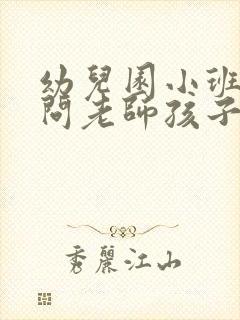 幼兒園小班
問老師孩子
秀麗江山